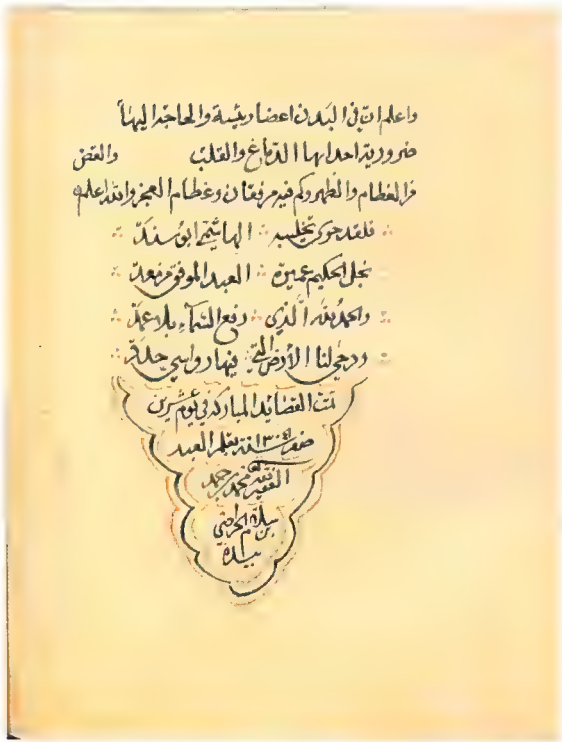 واعلم ان في البدن اعضا رئيسة والحاجة اليها
ضرورية احداها الدماغ والقلب والعض
والعظام والظهر وكم فيه من فقان وعظام العجز والله اعلم
فلقد حوى تجليسه الهاشمي ابو سند
نجل الحكيم عميرة العبد الموفق من معد
والحمد لله الذي رفع السماء بلا عمد
ودحى لنا الأرض التي فيها رواسي
تمت القصائد المباركة في يوم عشرين
صفر سنة ١٣٠٤ بقلم العبد
الفقير لله محمد بن حمد
بن سلام
بيده